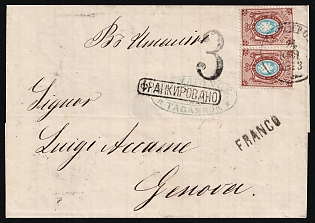 Въ Италію
3
ФРАНКИРОВАНО
TAGANROK
Signor
FRANCO
Luigi Accame
Genova.